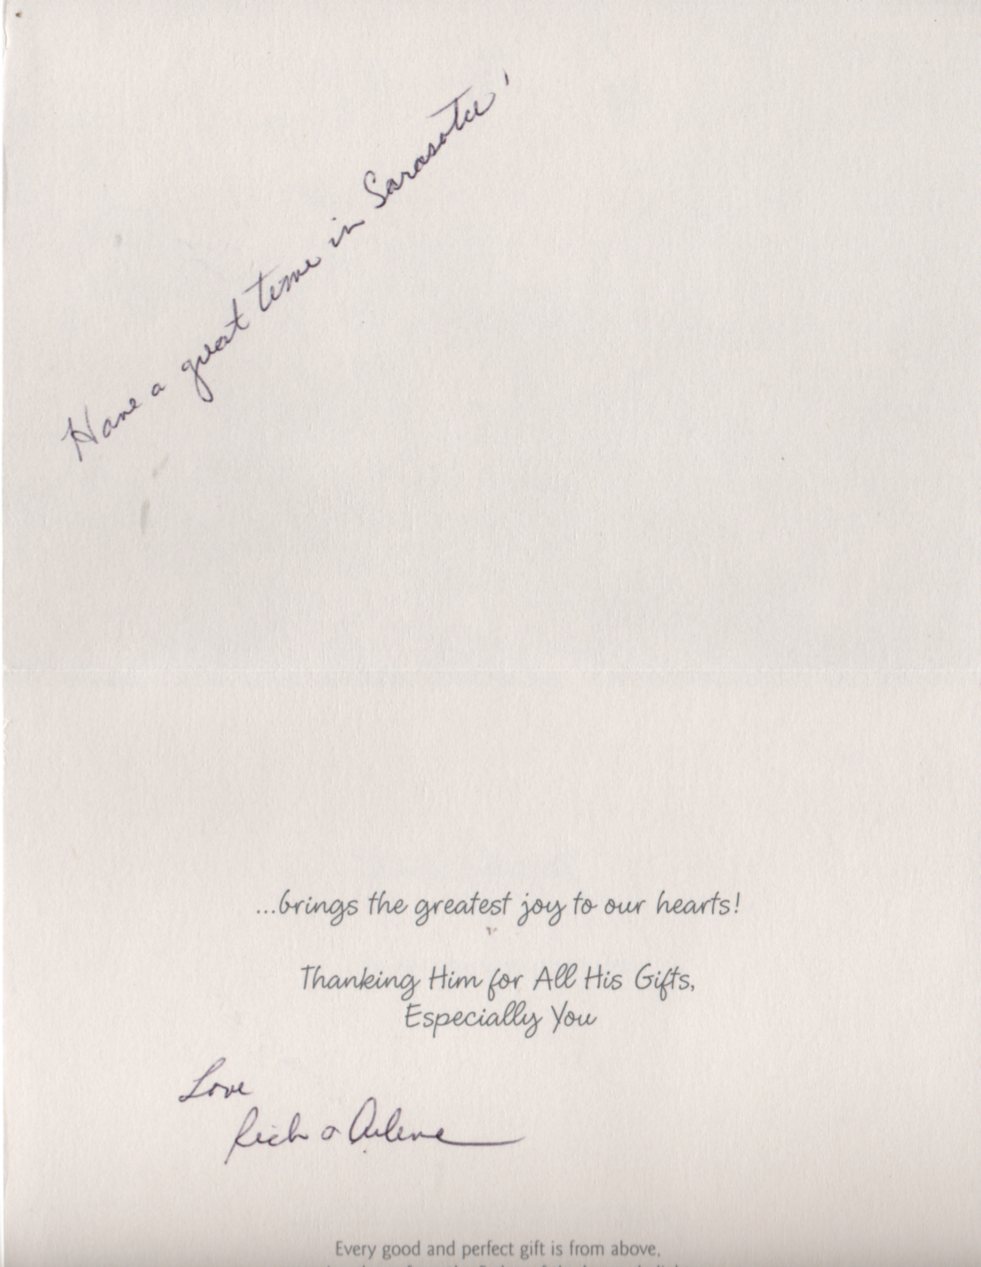 Have a great time in Sarasota!
...brings the greatest joy to our hearts!
Thanking Him for All His Gifts,
Especially You
Love
Rich & Arlene
Every good and perfect gift is from above,